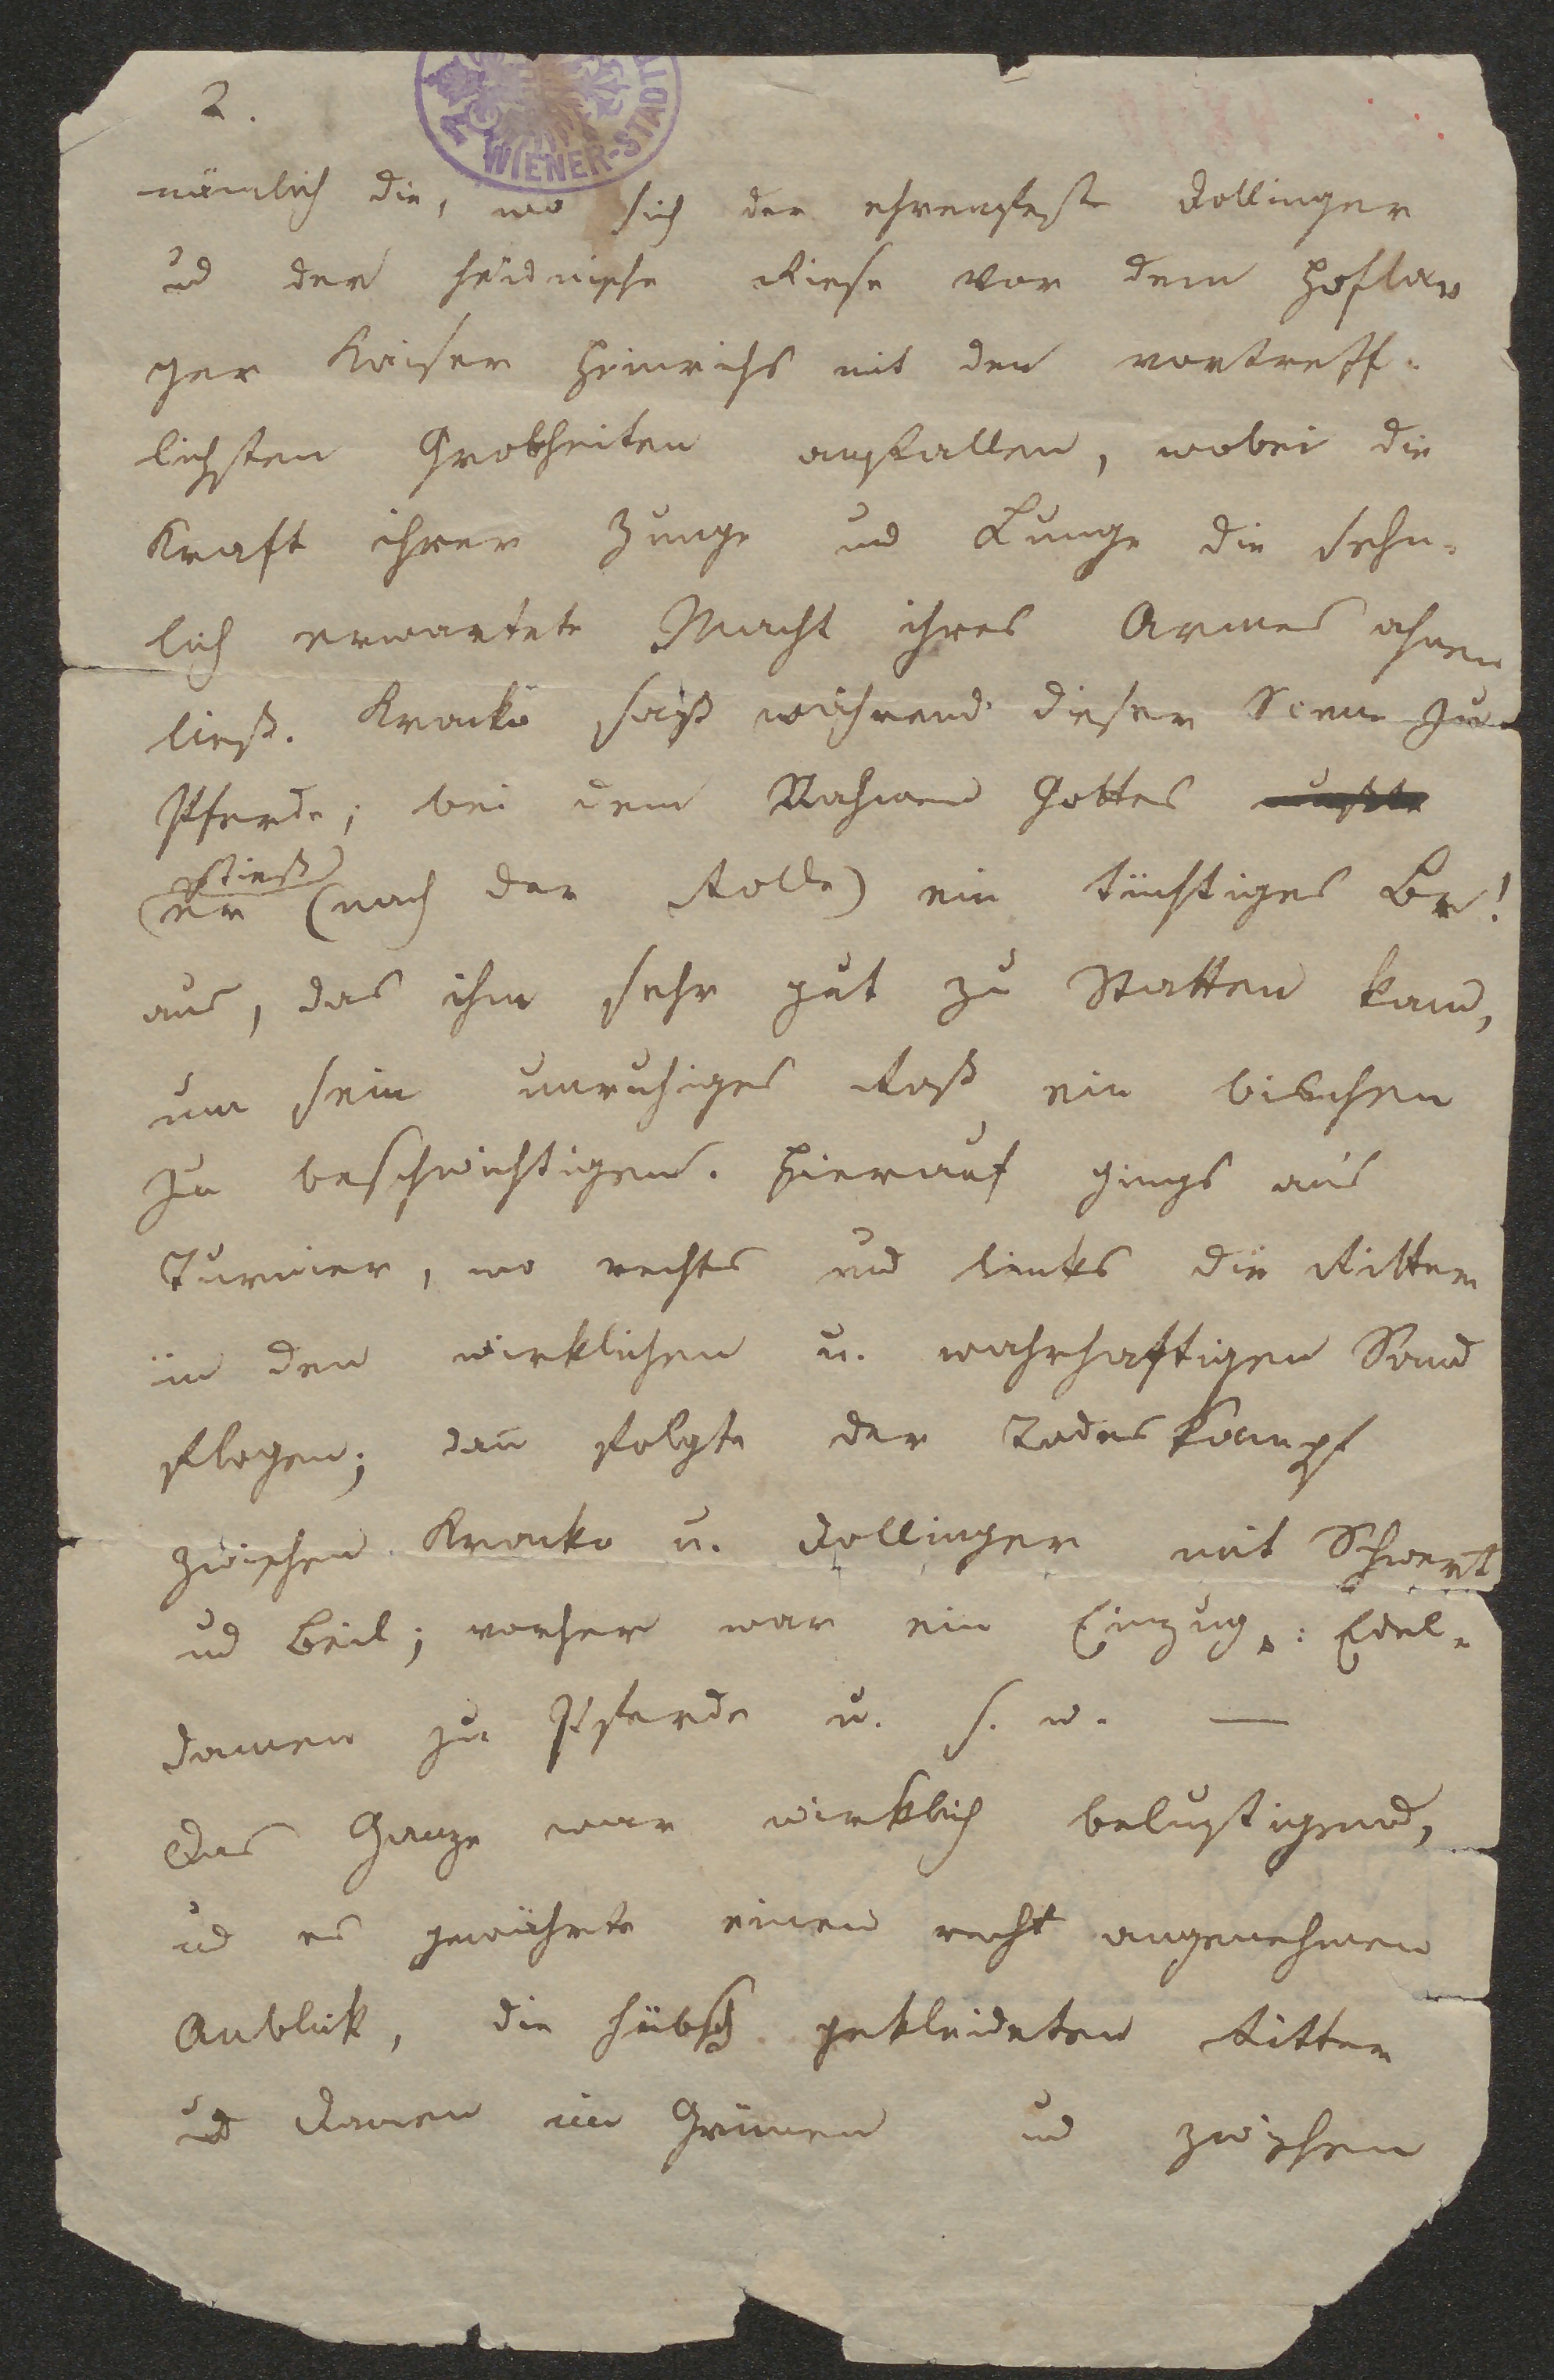 2.
WIENER-STADT
nämlich die, wo sich der ehrenfeste Dollinger
ud der heidnische Riese vor dem Hofla
ger Kaiser Heinrichs mit den vortreff-
lichsten Grobheiten anfallen, wobei die
Kraft ihrer Zunge und Lunge die sehn-
lich erwartete Macht ihres Armes ahnen
ließ. Krako saß während dieser Scene zu
Pferde; bei dem Nahmen Gottes
stieß
er (nach der Rolle) ein tüchtiges Br!
aus, das ihm sehr gut zu Statten kam,
um sein unruhiges Roß ein bischen
zu beschwichtigen. Hierauf gings ans
Turnier, wo rechts und links die Ritter
in den wirklichen u. wahrhaftigen Sand
flogen; dan̄ folgte der Todeskampf
zwischen Krako u. Dollinger mit Schwert
ud Beil; vorher war ein Einzug: Edel-
damen zu Pferde u. s. w. —
Das Ganze war wirklich belustigend,
ud es gewährte einen recht angenehmen
Anblick, die hübsch gekleideten Ritter
ud Damen im Grünen ud zwischen